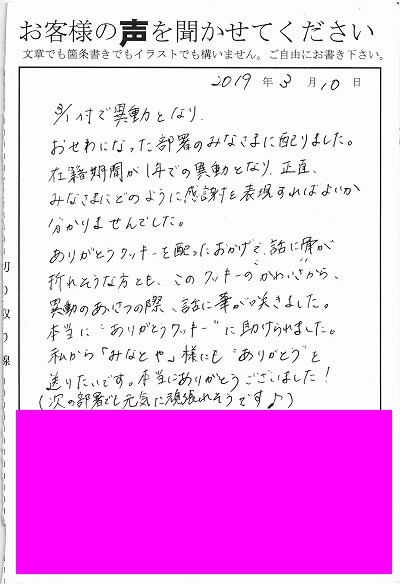 お客様の声を聞かせてください
文章でも箇条書きでもイラストでも構いません。ご自由にお書き下さい。
2019年3月10日
3/1付で異動となり、
おせわになった部署のみなさまに配りました。
在籍期間が1年での異動となり、正直、
みなさまにどのように感謝を表現すればよいか
分かりませんでした。
ありがとうクッキーを配ったおかげで、話に骨が
折れそうな方とも、このクッキーのかわいさから、
異動のあいさつの際、話に華が咲きました。
本当に"ありがとうクッキー"に助けられました。
私から「みなとや」様にも"ありがとう"を
送りたいです。本当にありがとうございました!
(次の部署でも元気に頑張れそうです♪)
切り取り線